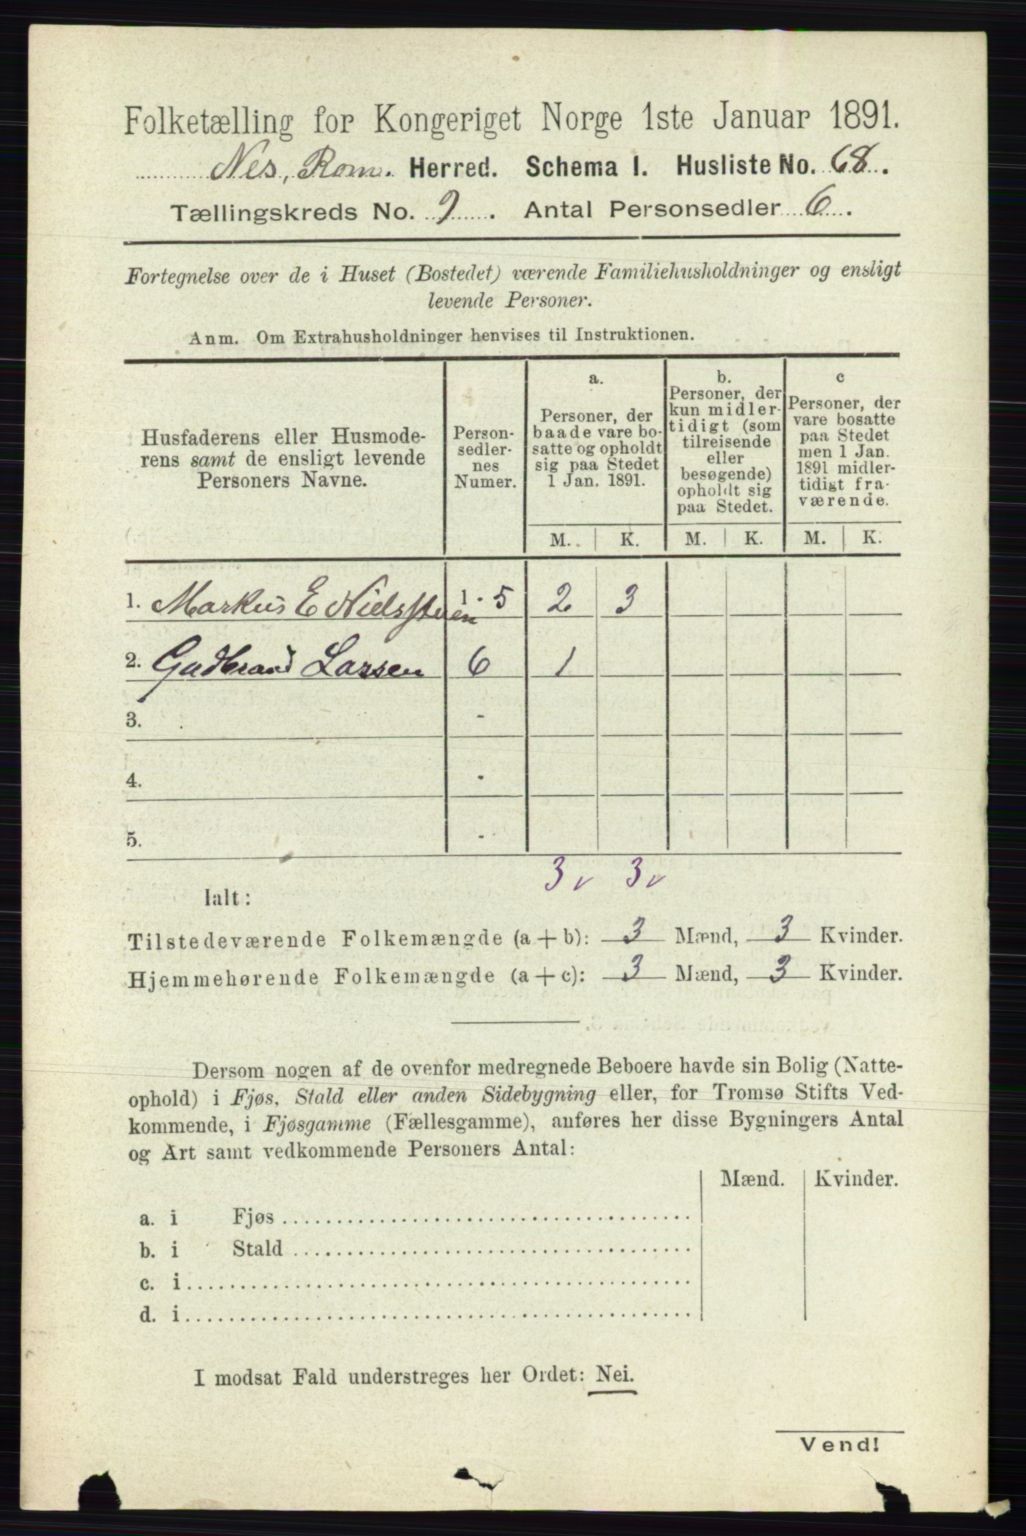 Folketælling for Kongeriget Norge 1ste Januar 1891.
Nes, Rom. Herred. Schema I. Husliste No. 68.
Tællingskreds No. 9. Antal Personsedler 6.
Fortegnelse over de i Huset (Bostedet) værende Familiehusholdninger og ensligt
levende Personer.
Anm. Om Extrahusholdninger henvises til Instruktionen.
Husfaderens eller Husmode-
rens samt de ensligt levende
Personers Navne.
Person-
sedler-
nes
Numer.
a.
Personer, der
baade vare bo-
satte og opholdt
sig paa Stedet
1 Jan. 1891.
b.
Personer, der
kun midler-
tidigt (som
tilreisende
eller
besøgende)
opholdt sig
paa Stedet.
c
Personer, der
vare bosatte
paa Stedet
men 1 Jan.
1891 midler-
tidigt fra-
værende.
M. K. M. K. M. K.
1. Markus E Nielsstuen 1 - 5 2 3
2. Gudbrand Larsen 6 1
3. -
4. -
5. -
3 v 3 v
Ialt:
Tilstedeværende Folkemængde (a + b): 3 Mænd, 3 Kvinder.
Hjemmehørende Folkemængde (a + c): 3 Mænd, 3 Kvinder.
Dersom nogen af de ovenfor medregnede Beboere havde sin Bolig (Natte-
ophold) i Fjøs, Stald eller anden Sidebygning eller, for Tromsø Stifts Ved-
kommende, i Fjøsgamme (Fællesgamme), anføres her disse Bygningers Antal
og Art samt vedkommende Personers Antal:
Mænd. Kvinder.
a. i Fjøs
b. i Stald
c. i
d. i
I modsat Fald understreges her Ordet: Nei.
Vend!